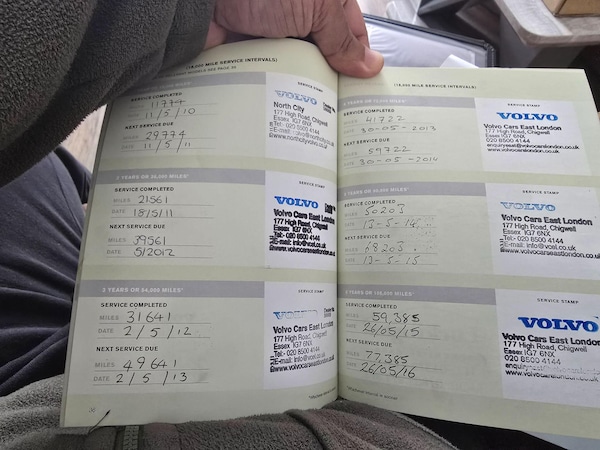 (18,000 MILE SERVICE INTERVALS)
SERVICE COMPLETED
MILES 11774
DATE 11/5/10
NEXT SERVICE DUE
29774
11/5/11
SERVICE STAMP
VOLVO
North City
177 High Road, Chigwell
Essex IG7 6NX
Tel:- 020 8500 4144
2 YEARS OR 36,000 MILES*
SERVICE COMPLETED
MILES 21561
DATE 18/5/11
NEXT SERVICE DUE
MILES 39561
DATE 5/2012
SERVICE STAMP
VOLVO
Volvo Cars East London
177 High Road, Chigwell
Essex IG7 6NX
Tel:- 020 8500 4144
E-mail: info@vcel.co.uk
www.volvocarseastlondon.co.uk
3 YEARS OR 54,000 MILES*
SERVICE COMPLETED
MILES 31641
DATE 2/5/12
NEXT SERVICE DUE
MILES 49641
DATE 2/5/13
SERVICE STAMP
VOLVO
Volvo Cars East London
177 High Road, Chigwell
Essex IG7 6NX
Tel:- 020 8500 4144
E-mail: info@vcel.co.uk
www.volvocarseastlondon.co.uk
(18,000 MILE SERVICE INTERVALS)
SERVICE COMPLETED
MILES 41722
DATE 30-05-2013
NEXT SERVICE DUE
MILES 59722
DATE 30-05-2014
SERVICE STAMP
VOLVO
Volvo Cars East London
177 High Road, Chigwell
Essex IG7 6NX
020 8500 4144
www.volvocarseastlondon.co.uk
SERVICE COMPLETED
MILES 50203
DATE 13-5-14
NEXT SERVICE DUE
MILES 68203
DATE 13-5-15
SERVICE STAMP
VOLVO
Volvo Cars East London
177 High Road, Chigwell
Essex IG7 6NX
Tel:- 020 8500 4144
E-mail: info@vcel.co.uk
www.volvocarseastlondon.co.uk
SERVICE COMPLETED
MILES 59,385
DATE 26/05/15
NEXT SERVICE DUE
MILES 77,385
DATE 26/05/16
SERVICE STAMP
VOLVO
Volvo Cars East London
177 High Road, Chigwell
Essex IG7 6NX
020 8500 4144